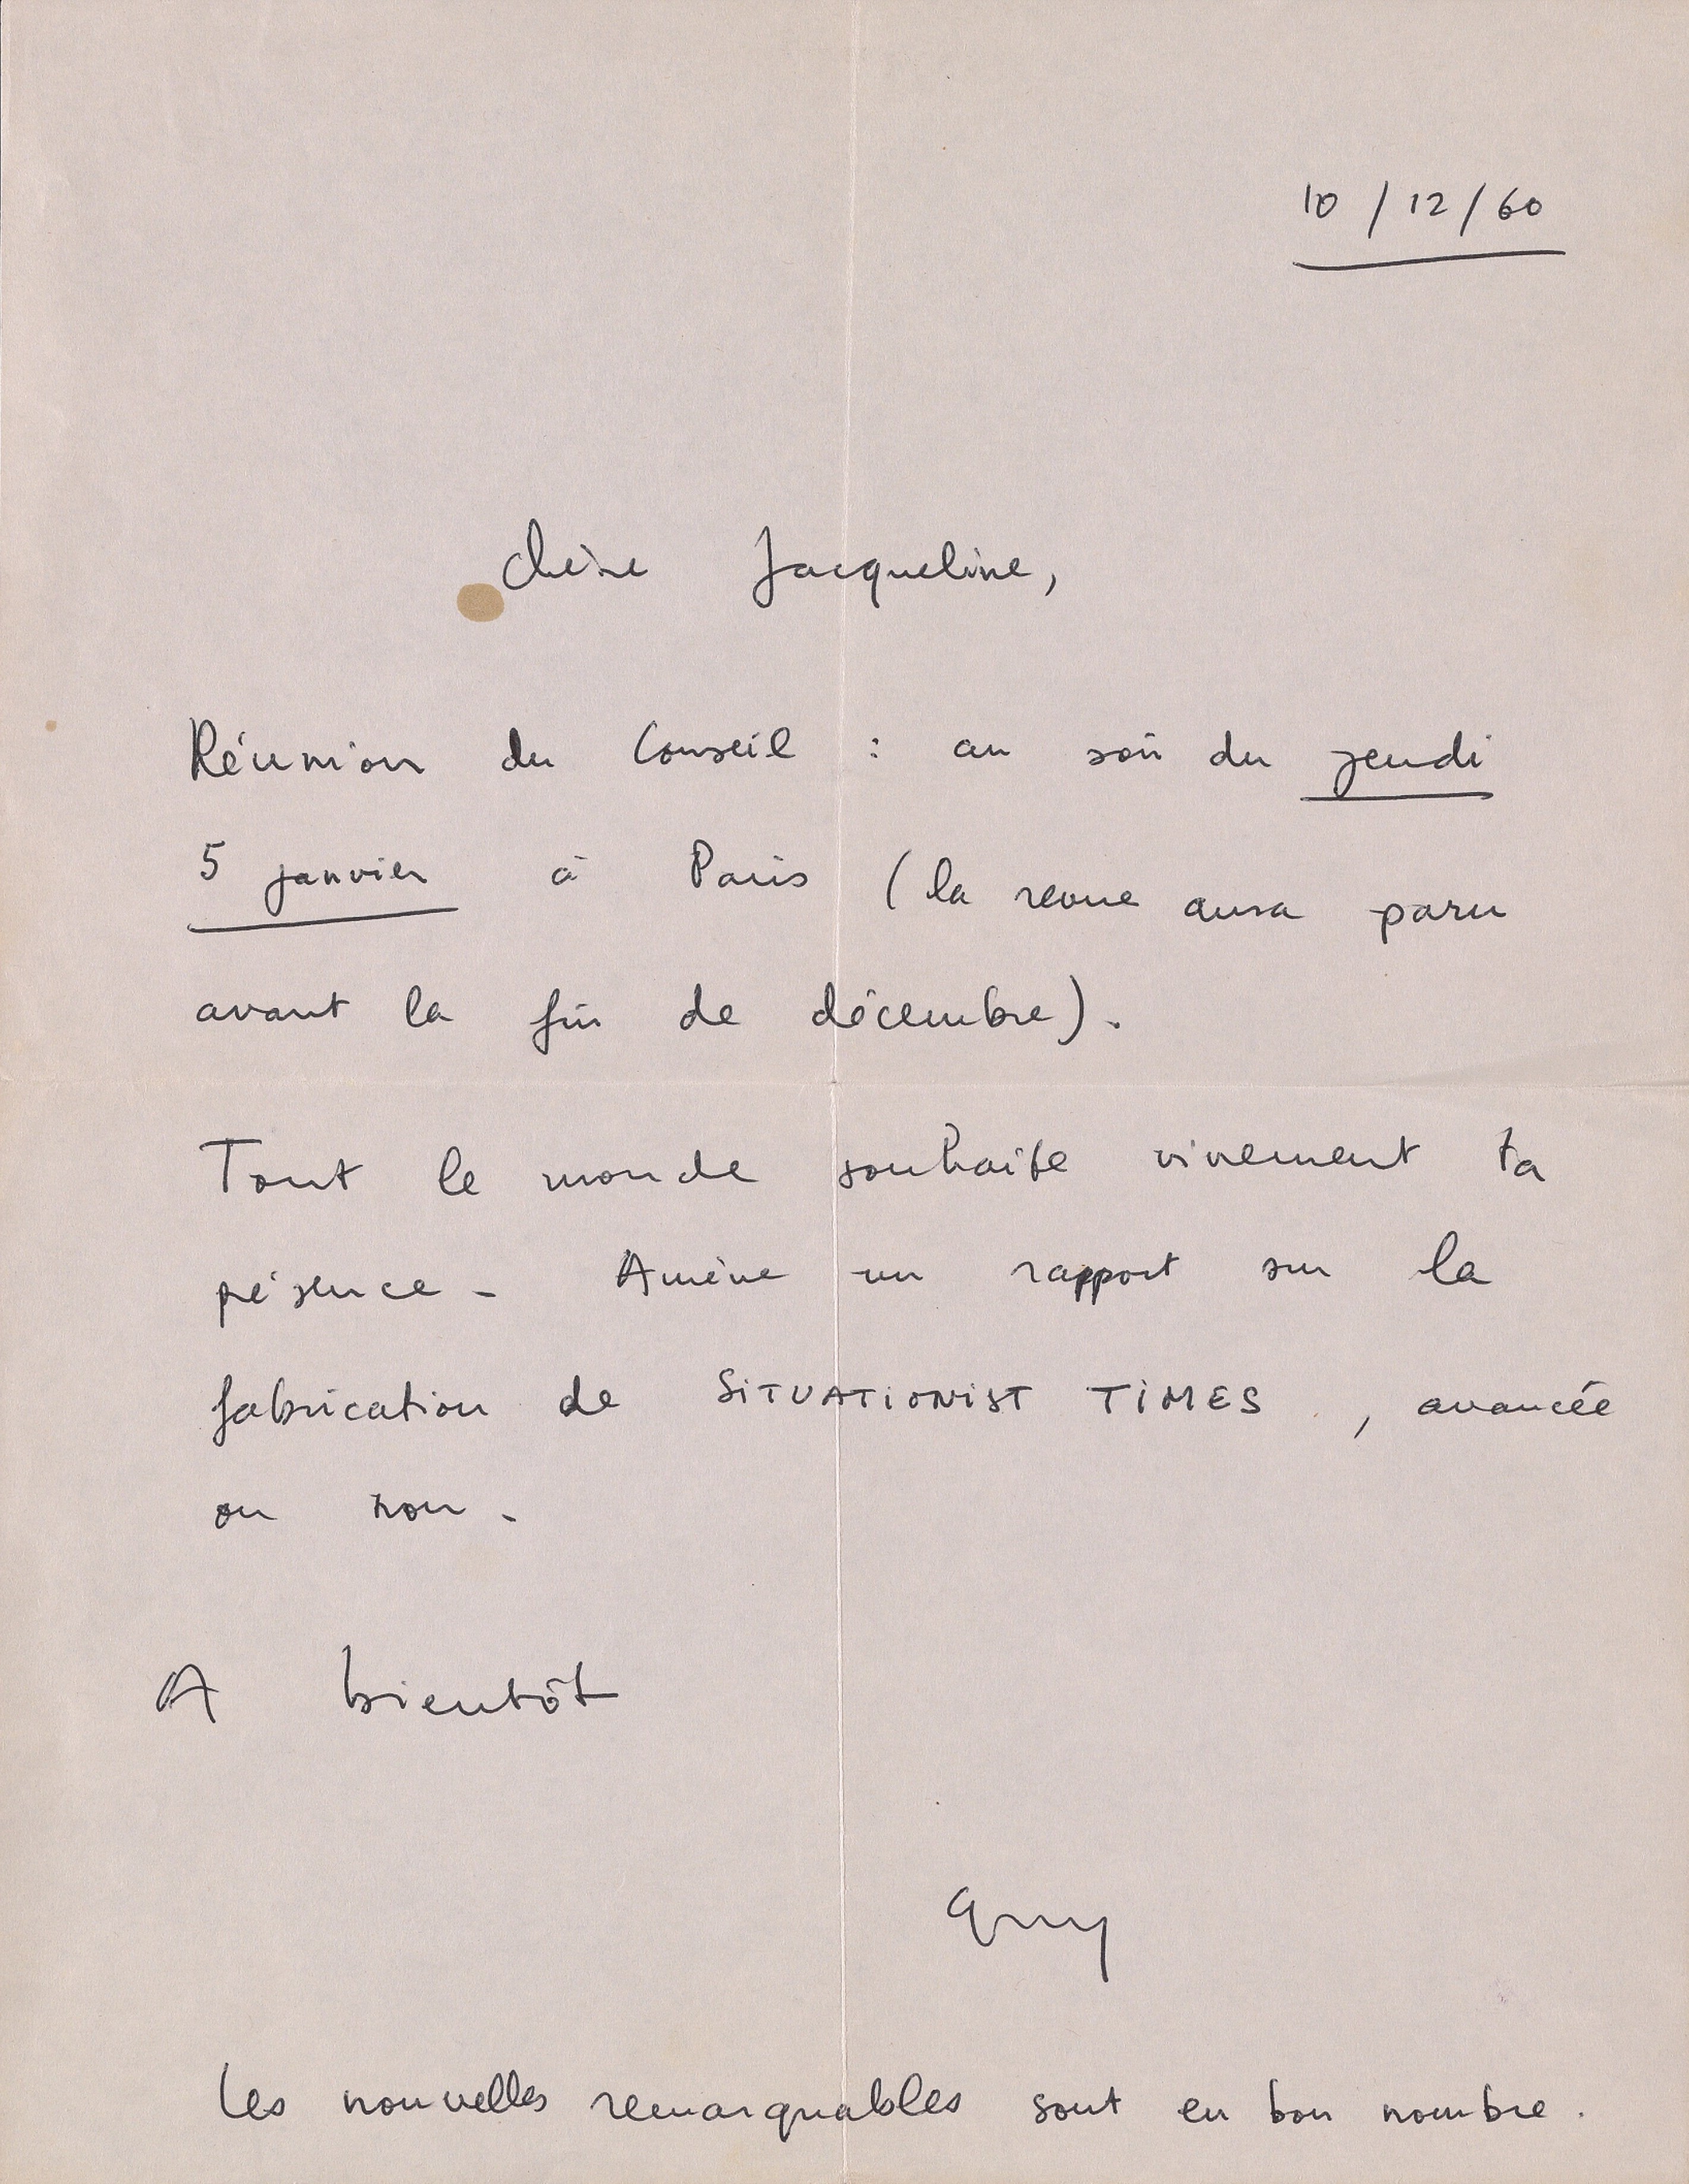 10 / 12 / 60
Chère Jacqueline,
Réunion du Conseil : au soir du jeudi
5 janvier à Paris (la revue aura paru
avant la fin de décembre).
Tout le monde souhaite vivement ta
présence. Amène un rapport sur la
fabrication de SITUATIONIST TIMES , avancée
ou non.
A bientôt
Guy
Les nouvelles remarquables sont en bon nombre.